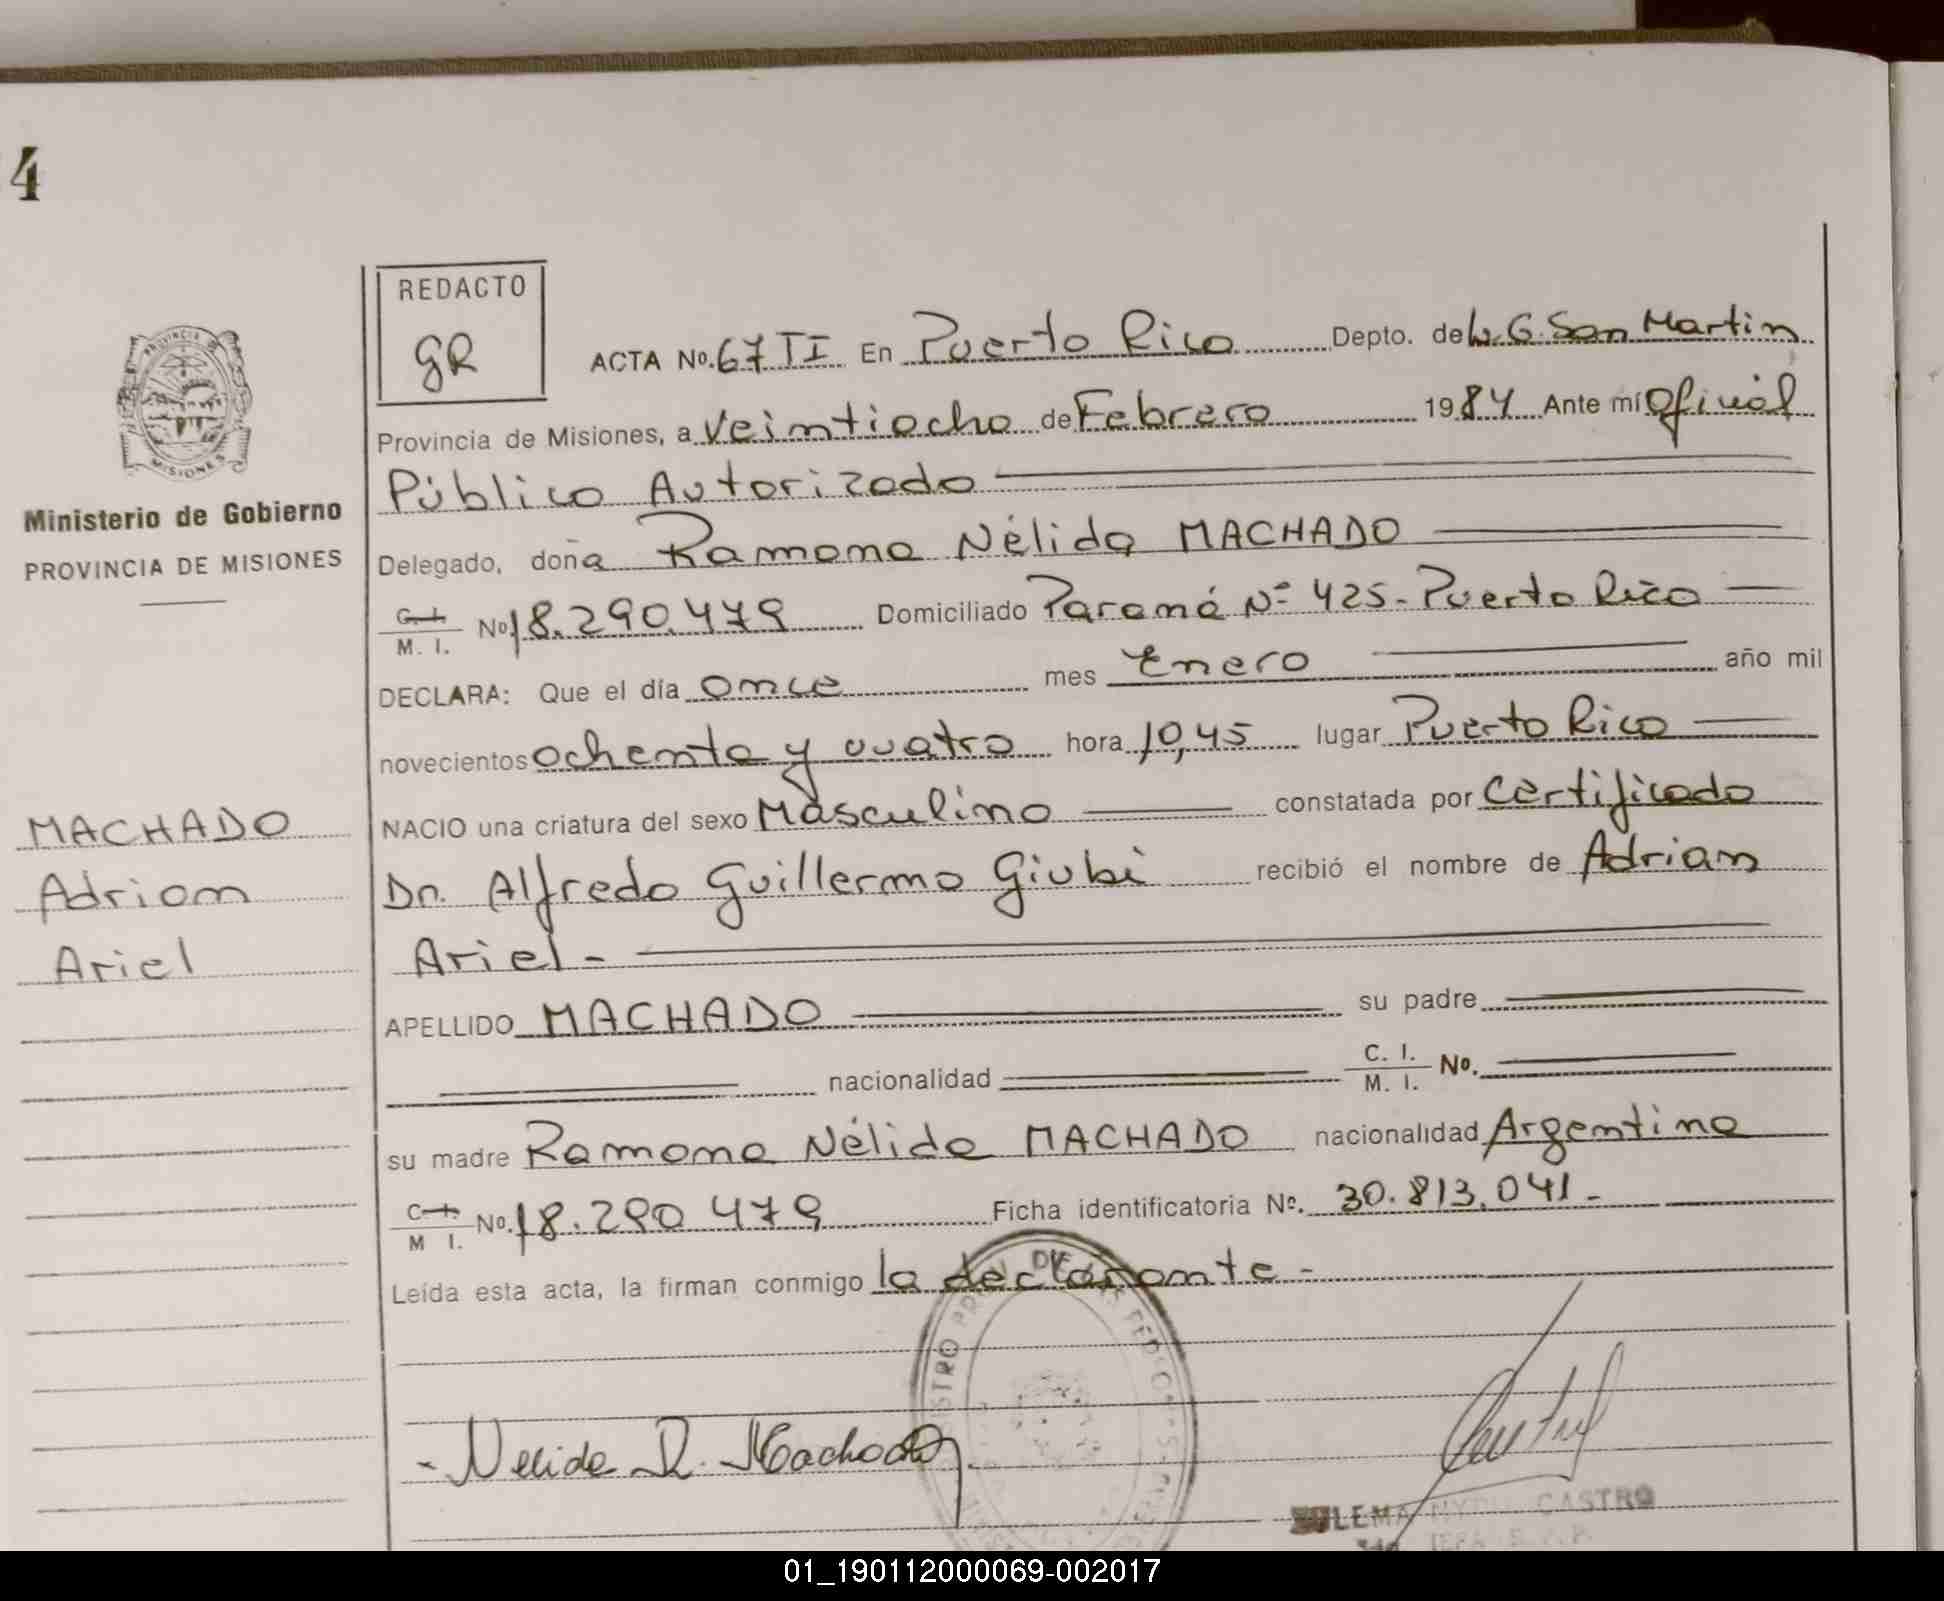 4
REDACTO
GR
ACTA No. 67 TI En Puerto Rico Depto. de L. G. San Martin
Provincia de Misiones, a veintiocho de Febrero 1984 Ante mí Oficial
Público Autorizado
Delegado, doña Ramona Nélida MACHADO
C. I. / M. I. No 18.290.479 Domiciliado Paraná Nº 425 - Puerto Rico
DECLARA: Que el día once mes Enero año mil
novecientos ochenta y cuatro hora 10,45 lugar Puerto Rico
NACIO una criatura del sexo Masculino constatada por Certificado
Dr. Alfredo Guillermo Giubi recibió el nombre de Adrian
Ariel -
APELLIDO MACHADO su padre
nacionalidad C. I. / M. I. No.
su madre Ramona Nélida MACHADO nacionalidad Argentina
C. I. / M I. No. 18.290 479 Ficha identificatoria Nº. 30.813.041 -
Leída esta acta, la firman conmigo la declarante -
- Nelida R. Machado
CASTRO
PROVINCIA DE
MISIONES
Ministerio de Gobierno
PROVINCIA DE MISIONES
MACHADO
Adrian
Ariel
01_190112000069-002017